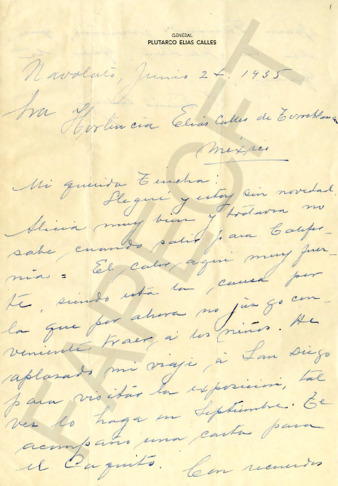 GENERAL
PLUTARCO ELIAS CALLES
Navolato, Junio 24. 1935
Sra Hortencia Elías Calles de Torreblanca
Mexico
Mi querida Tencha:
Llegué y estoy sin novedad
Alicia muy bien y todavia no
sabe cuando salir para Califor-
nia = El calor aqui muy fuer-
te, siendo esta la causa por
la que por ahora no juzgo con-
veniente traer á los niños. He
aplazado mi viaje á San Diego
para visitar la exposicion, tal
vez lo haga en Septiembre. Te
acompaño una carta para
el Caquito. Con recuerdos
FAPECFT